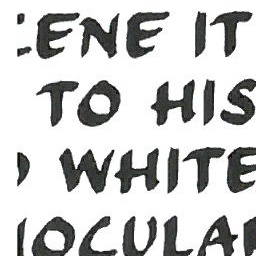 ENE IT
TO HIS
WHITE
OCULA